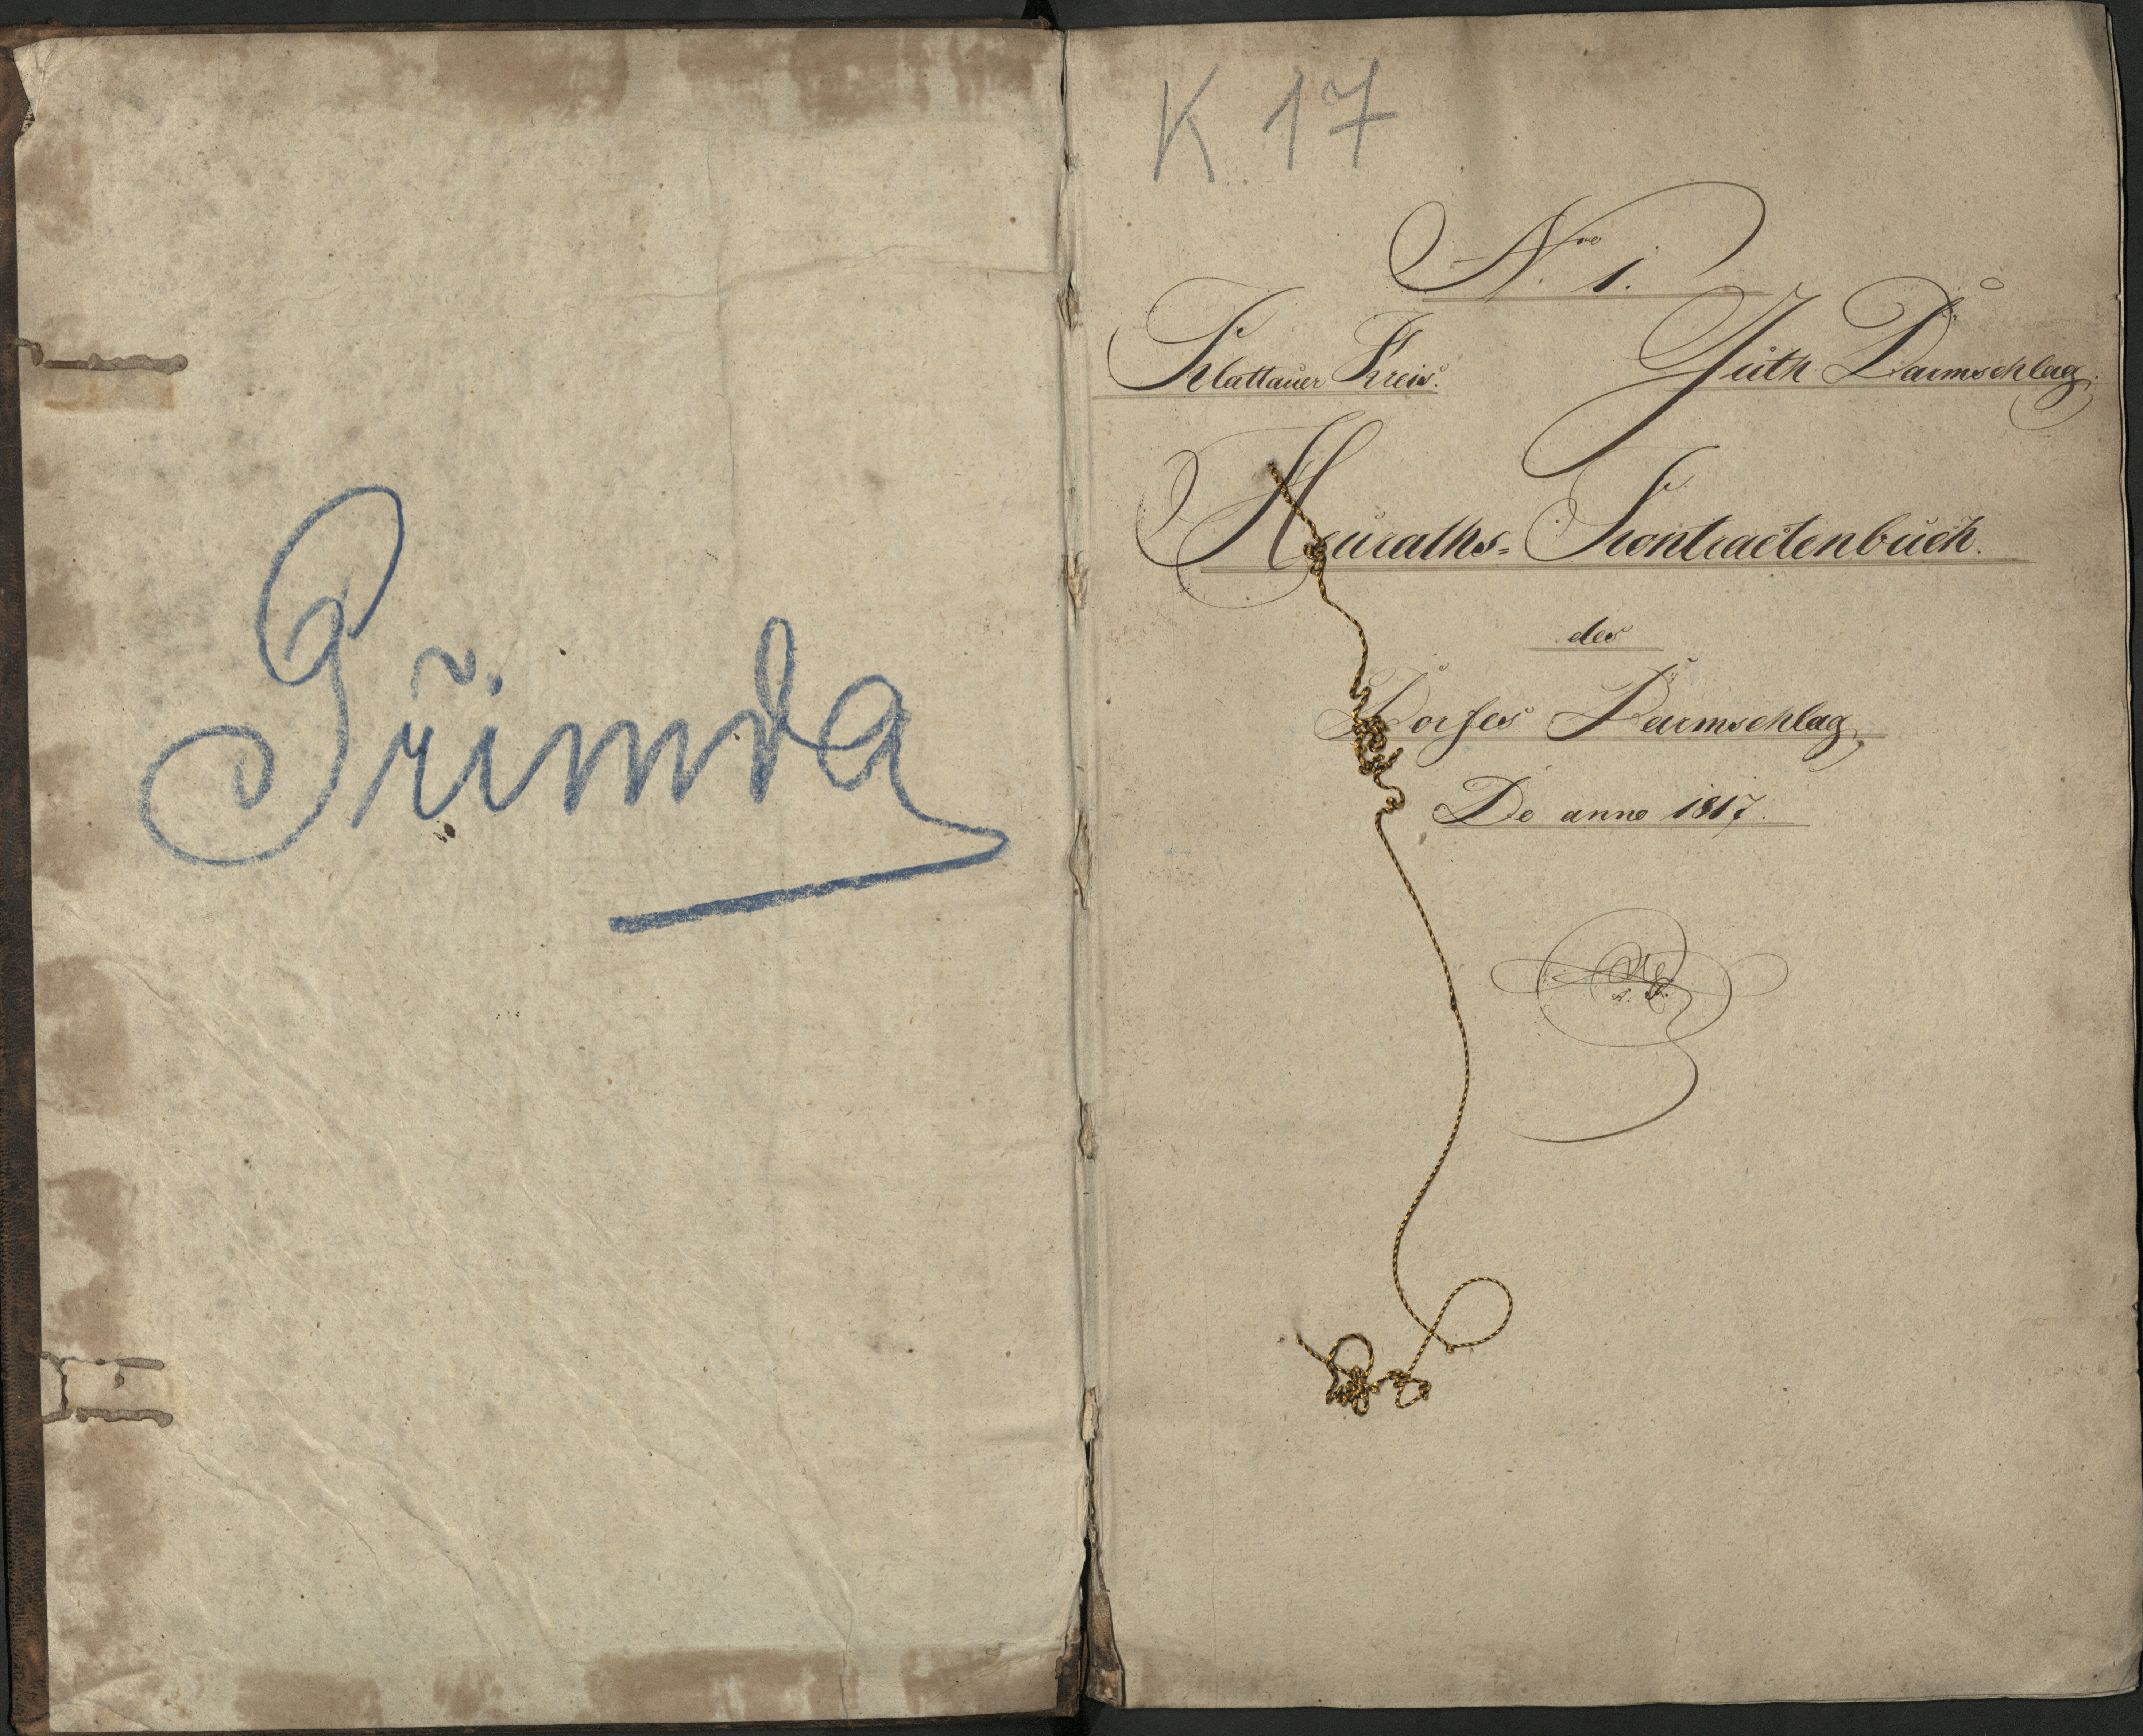 Přimda
K 17
Nro 1.
Klattauer Kreis.
Guth Darmschlag.
Heuraths= Kontractenbuch.
des
Dorfes Darmschlag,
De anno 1817.